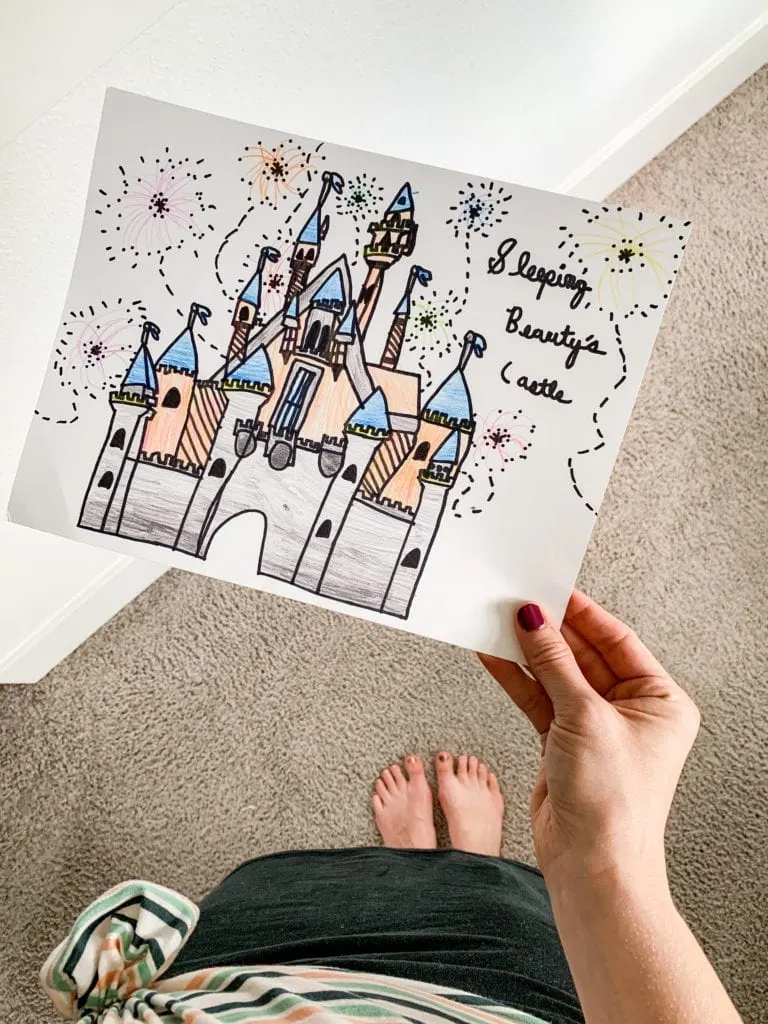 Sleeping
Beauty's
Castle